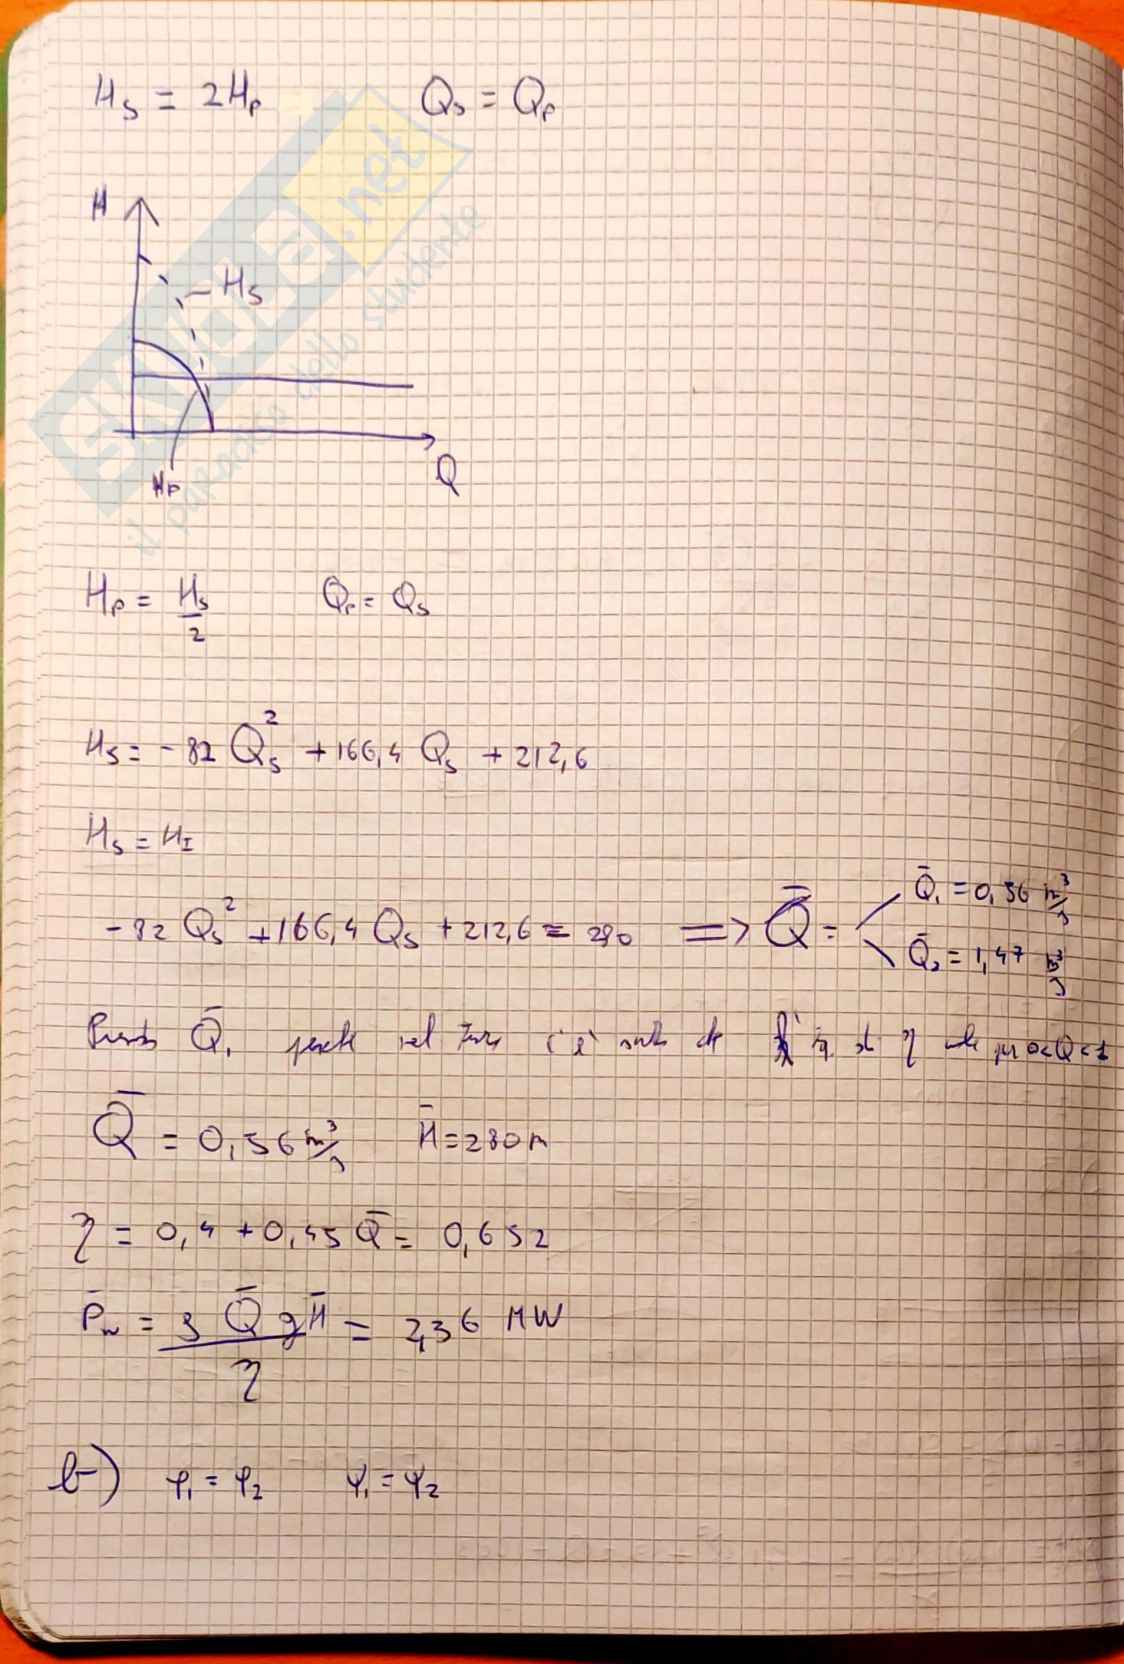 H_S = 2H_P    Q_S = Q_P
H
H_S
Q
H_P
SKUOLA.net
il paradiso dello studente
H_P = H_S/2    Q_P = Q_S
H_S = -82 Q_S² + 166,4 Q_S + 212,6
H_S = H_I
-82 Q_S² + 166,4 Q_S + 212,6 = 280 ⟹ Q̄ = Q̄₁ = 0,56 m³/s
Q̄₂ = 1,47 m³/s
Q̄₁ perché nel c'è η per 0<Q<1
Q̄ = 0,56 m³/s    H̄ = 280 m
η = 0,4 + 0,45 Q̄ = 0,652
P̄_w = ρ Q̄ g H̄ / η = 2,36 MW
b) φ₁ = φ₂    ψ₁ = ψ₂